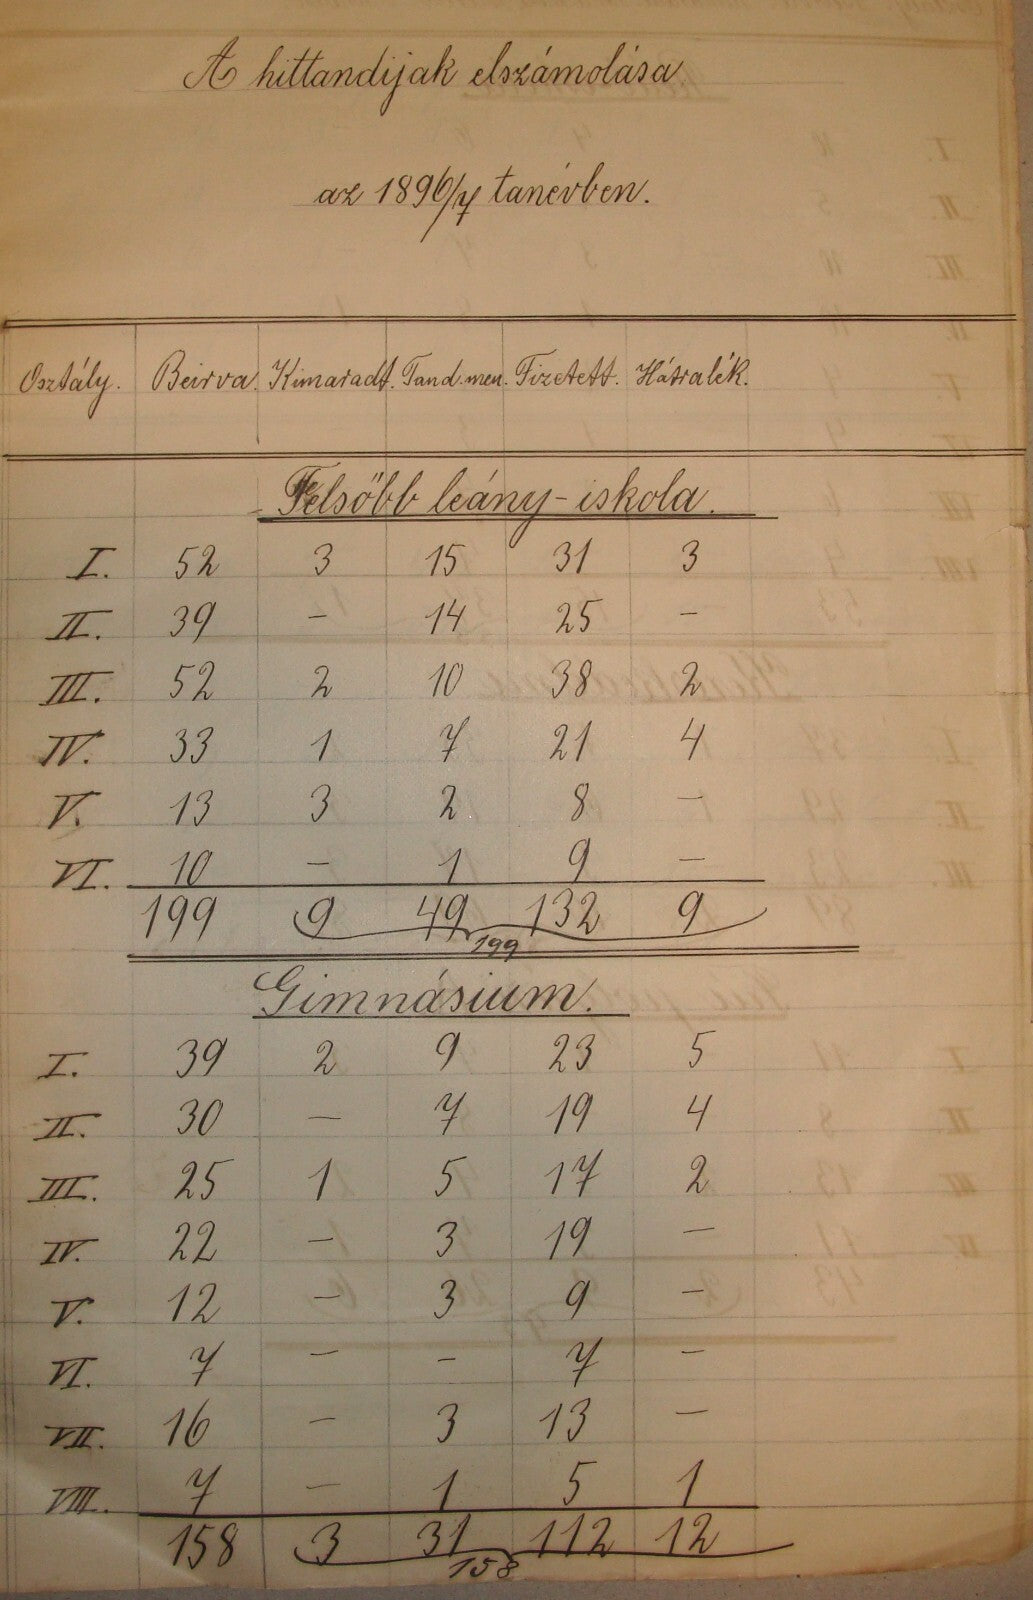 A hittandijak elszámolása
az 1896/7 tanévben.
Osztály. Beirva. Kimaradt. Tand.men. Fizetett. Hátralék.
Felsőbb leány-iskola.
I. 52 3 15 31 3
II. 39 - 14 25 -
III. 52 2 10 38 2
IV. 33 1 7 21 4
V. 13 3 2 8 -
VI. 10 - 1 9 -
199 9 49 132 9
199
Gimnásium.
I. 39 2 9 23 5
II. 30 - 7 19 4
III. 25 1 5 17 2
IV. 22 - 3 19 -
V. 12 - 3 9 -
VI. 7 - - 7 -
VII. 16 - 3 13 -
VIII. 7 - 1 5 1
158 3 31 112 12
158